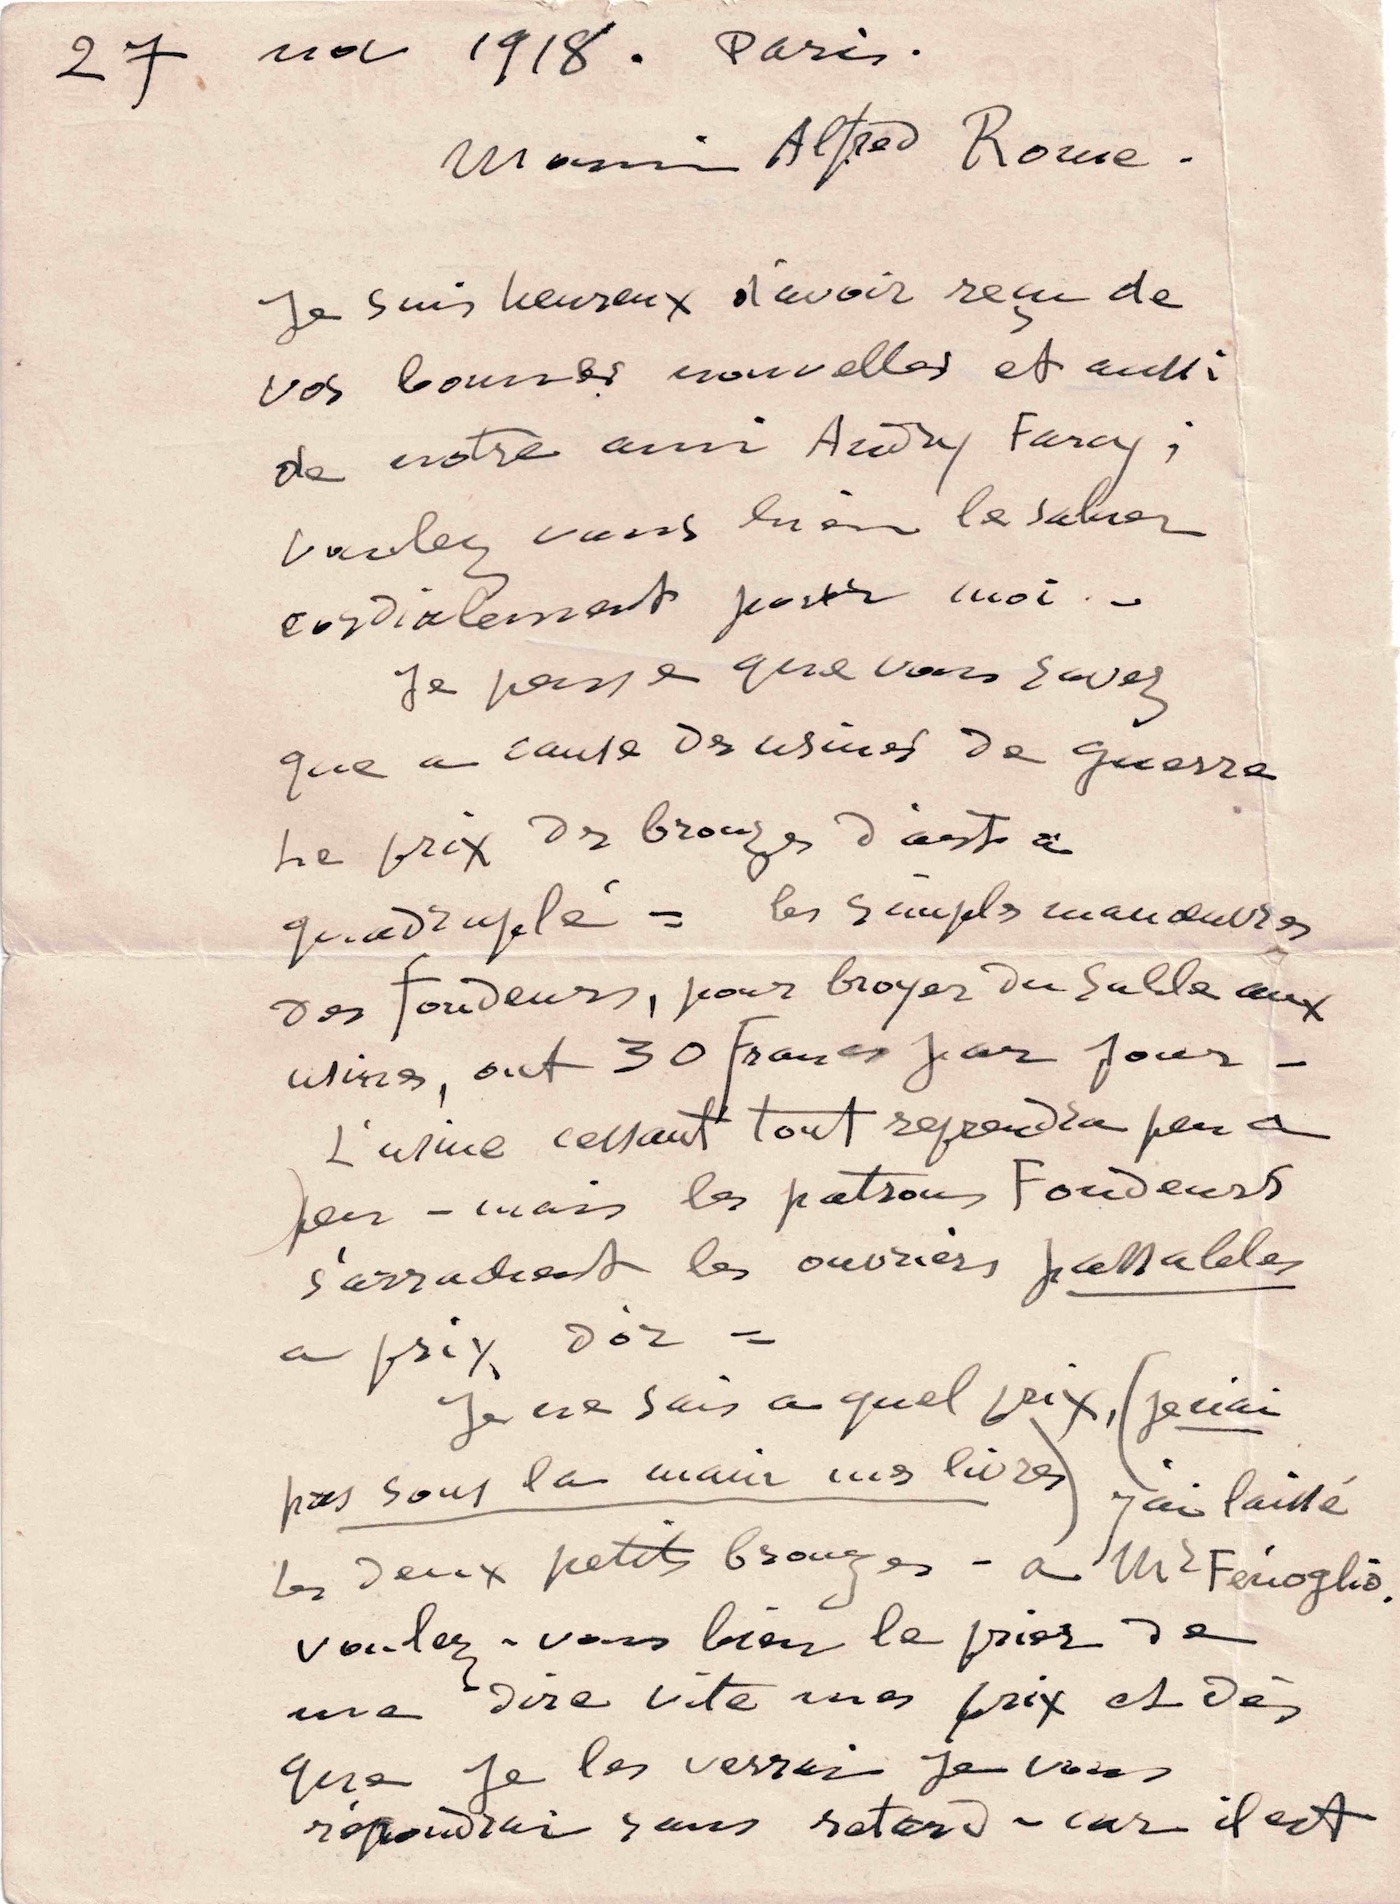 27 nov 1918. Paris.
Alfred Rome.
Je suis heureux d'avoir reçu de
vos bonnes nouvelles et aussi
de notre ami Andry Farcy ;
voulez vous bien le saluer
cordialement pour moi. -
Je pense que vous savez
que a cause des usines de guerre
Le prix des bronzes d'art a
quadruplé = les simples manœuvres
des fondeurs, pour broyer du sable aux
usines, ont 30 francs par jour -
L'usine cessant tout reprendra peu a
peu - mais les patrons Fondeurs
s'arrachent les ouvriers passables
a prix d'or =
Je ne sais a quel prix, (je n'ai
pas sous la main mes livres) j'ai laissé
Les deux petits bronzes - a Mr Fénoglio.
voulez-vous bien le prier de
me dire vite mes prix et dès
que je les verrai je vous
répondrai sans retard - car il est